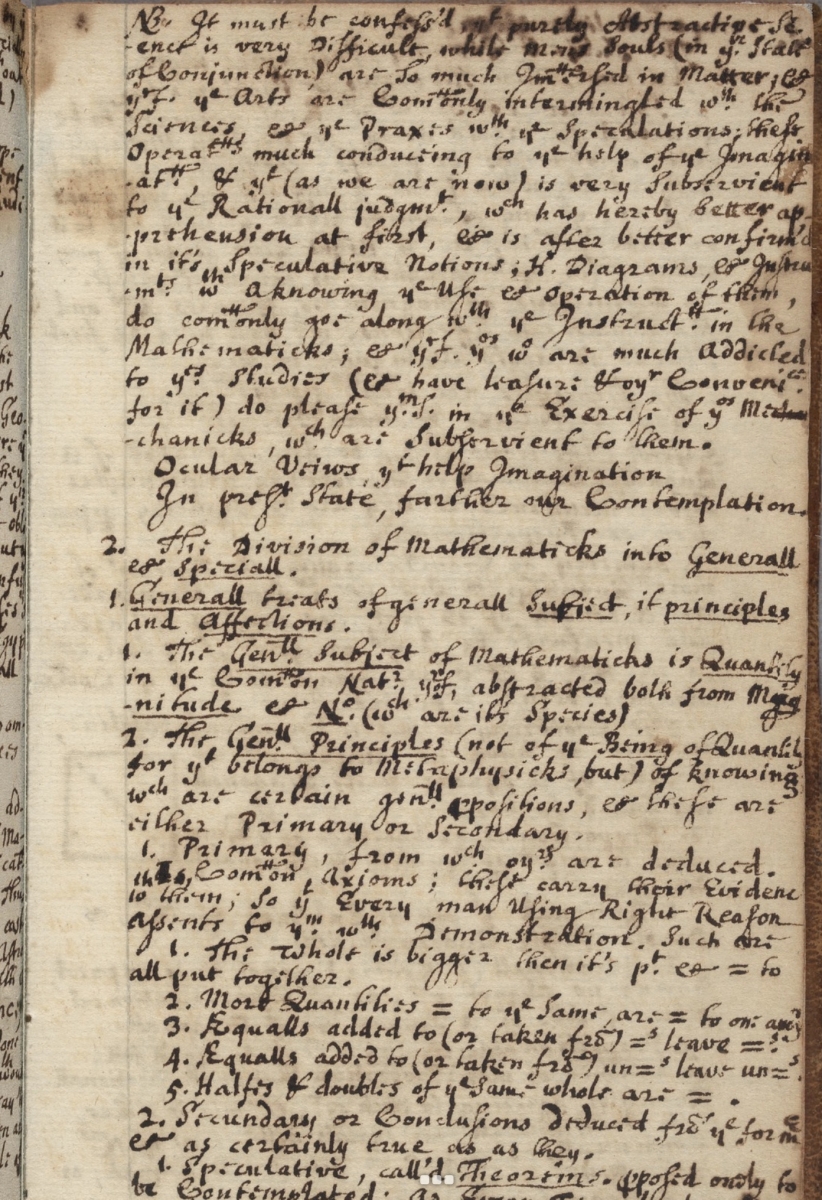 NB. It must be confess'd yt purely Abstractive Sci
-ence is very Difficult, while Mens Souls (in ye State
of Conjunction) are so much Immersed in Matter; &
yrf. ye Arts are Commonly intermingled wth the
Sciences, & ye Praxes wth ye Speculations; these
Operatns much conducing to ye help of ye Imagin
-atn, & yt (as we are now) is very Subservient
to ye Rationall judgmt, wch has hereby better ap-
-prehension at first, & is after better confirm'd
in it's Speculative Notions; H. Diagrams, & Instru
-mts wth a knowing ye Use & Operation of them,
do commonly goe along wth ye Instructn in the
Mathematicks; & yrf. yos wo are much Addicted
to yes Studies (& have leasure & oyr Convenice
for it) do please yms. in ye Exercise of yos Me
-chanicks, wch are Subservient to them.
Ocular Veiws yt help Imagination
In prest State, farther our Contemplation.
2. The Division of Mathematicks into Generall
& Speciall.
1. Generall treats of generall Subject, it principles
and Affections.
1. The Genll Subject of Mathematicks is Quantity
in ye Common Natr yrf, abstracted both from Mag
-nitude & No. (wch are its Species)
2. The Genll Principles (not of ye Being of Quantit
for yt belongs to Metaphysicks, but) of knowing
wch are certain genll ppositions, & these are
either Primary or Secondary.
1. Primary, from wch oyrs are deduced.
Common Axioms; these carry their Evidenc
to them; so yt Every man Using Right Reason
Assents to ym wth Demonstration. Such are
1. The Whole is bigger then it's pt. & = to
all put together.
2. More Quantities = to ye Same, are = to one anoy
3. Æqualls added to (or taken frō) =s leave =s.
4. Æqualls added to (or taken frō) un=s leave un=s.
5. Halfes & doubles of ye Same whole are = .
2. Secundary or Conclusions Deduced frō ye forme
& as certainly true as as they.
1. Speculative, call'd Theorems. pposed onely to
be Contemplated: As Every